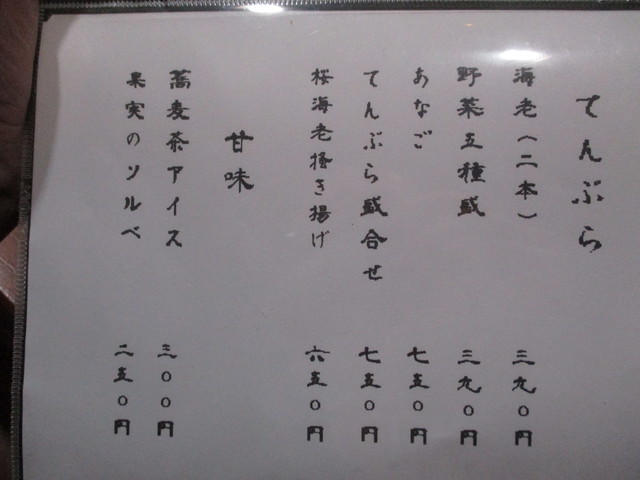 てんぷら
海老（二本） 三九〇円
野菜五種盛 三九〇円
あなご 七五〇円
てんぷら盛合せ 七五〇円
桜海老掻き揚げ 六五〇円
甘味
蕎麦茶アイス 三〇〇円
果実のソルベ 二五〇円